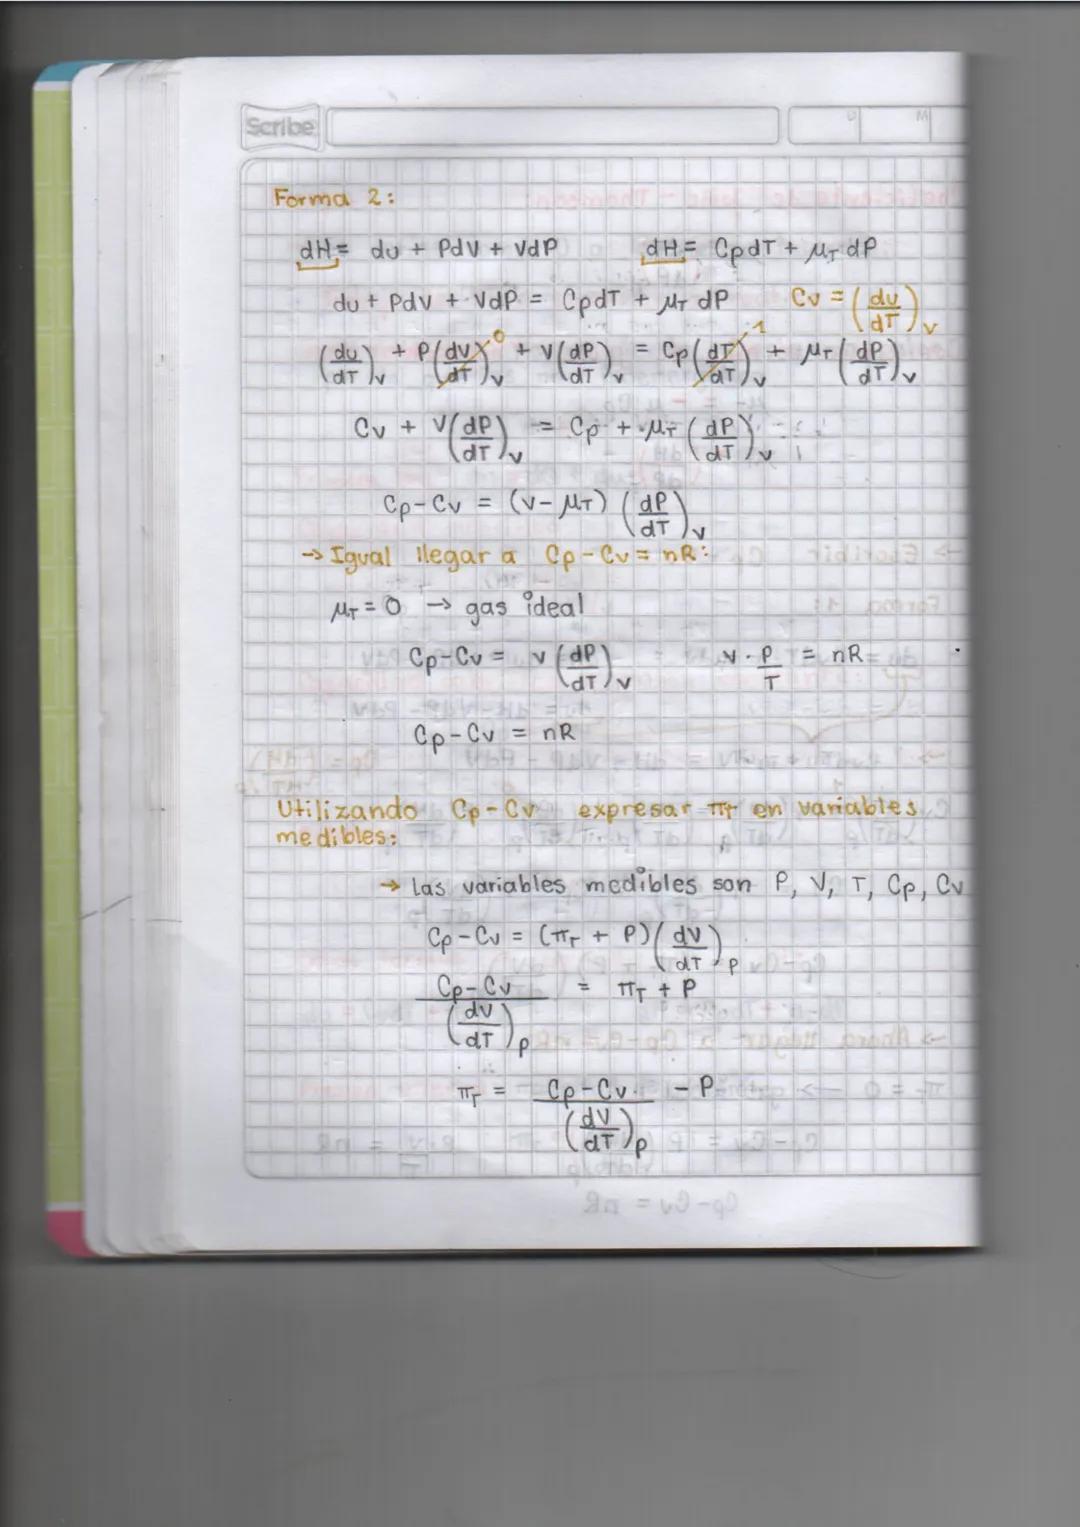 Scribe
D M
Forma 2:
dH = du + PdV + VdP dH = CpdT + μT dP
du + PdV + VdP = CpdT + μT dP Cv = (du/dT)v
(du/dT)v + P(dV/dT)v⁰ + V(dP/dT)v = Cp(dT/dT)v¹ + μT(dP/dT)v
Cv + V(dP/dT)v = Cp + μT(dP/dT)v
Cp-Cv = (V-μT)(dP/dT)v
→ Igual llegar a Cp-Cv = nR:
μT = 0 → gas ideal
Cp-Cv = V(dP/dT)v V·P/T = nR
Cp-Cv = nR
Utilizando Cp-Cv expresar πT en variables
medibles:
→ Las variables medibles son P, V, T, Cp, Cv
Cp-Cv = (πT + P)(dV/dT)p
Cp-Cv/(dV/dT)p = πT + P
πT = Cp-Cv/(dV/dT)p - P